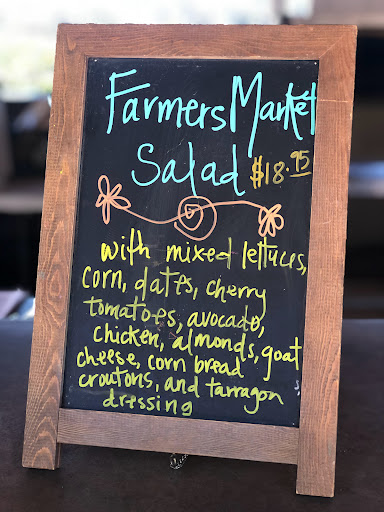 Farmers Market
Salad $18.95
with mixed lettuces,
corn, dates, cherry
tomatoes, avocado,
chicken, almonds, goat
cheese, corn bread
croutons, and tarragon
dressing